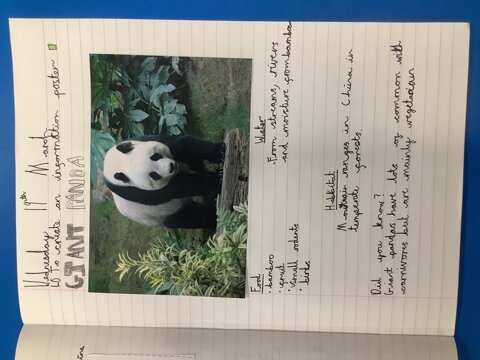 Wednesday 19th March
LO to create an information poster
GIANT PANDA
Food
· bamboo
· small rodents
· birds
Water
From streams, rivers
and moisture from bamboo
Habbitat
Mountain ranges in China in
temperate forests.
Did you know?
Giant pandas have lots of common with
carnivores but are mainly vegetarian